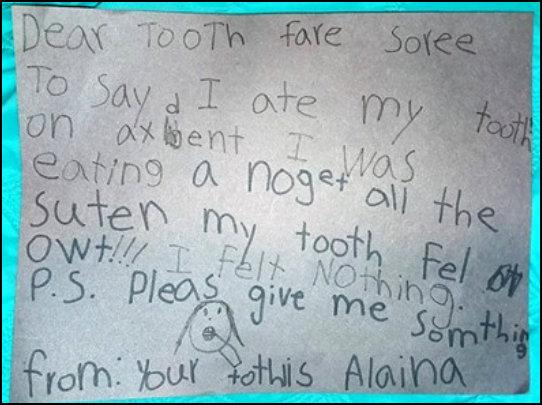 Dear Tooth fare soree
To say d I ate my tooth
on axbent I was
eating a noget all the
suten my tooth fel
owt!!! I felt NOthing.
P.S. pleas give me somthing
from: your tothis Alaina